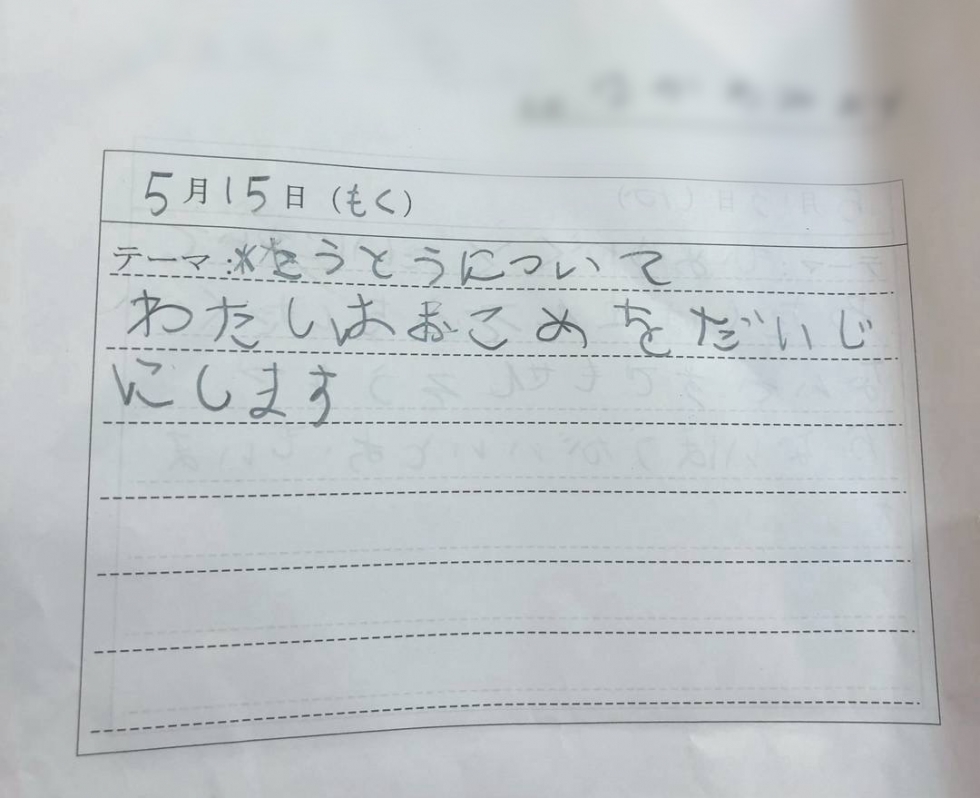 5月15日(もく)
テーマ:米そうとうについて
わたしはおこめをだいじ
にします